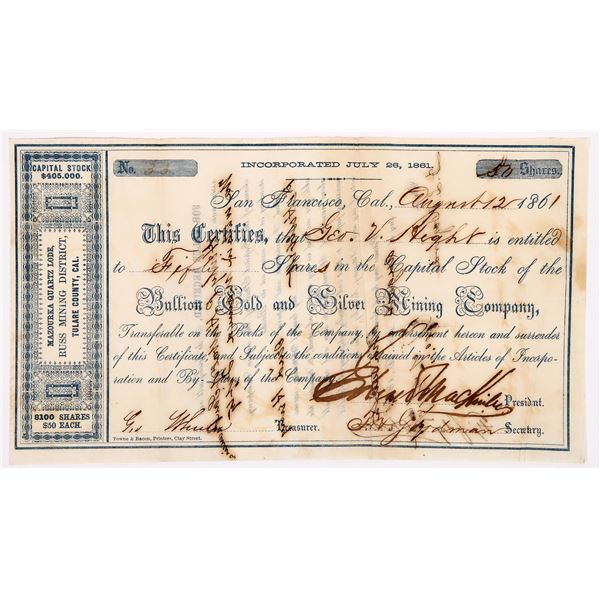 CAPITAL STOCK
$405.000.
MAZOURKA QUARTZ LODE,
RUSS MINING DISTRICT,
TULARE COUNTY, CAL.
8100 SHARES
$50 EACH.
No.
INCORPORATED JULY 26, 1861.
50 Shares.
San Francisco, Cal., August 12 1861
This Certifies, that Geo. V. Hight is entitled
to Fifty Shares in the Capital Stock of the
Bullion Gold and Silver Mining Company,
Transferable on the Books of the Company, by endorsement hereon and surrender
of this Certificate, and Subject to the conditions contained in the Articles of Incorpo-
ration and By-Laws of the Company.
President.
Treasurer.
Secretary.
Towne & Bacon, Printers, Clay Street.